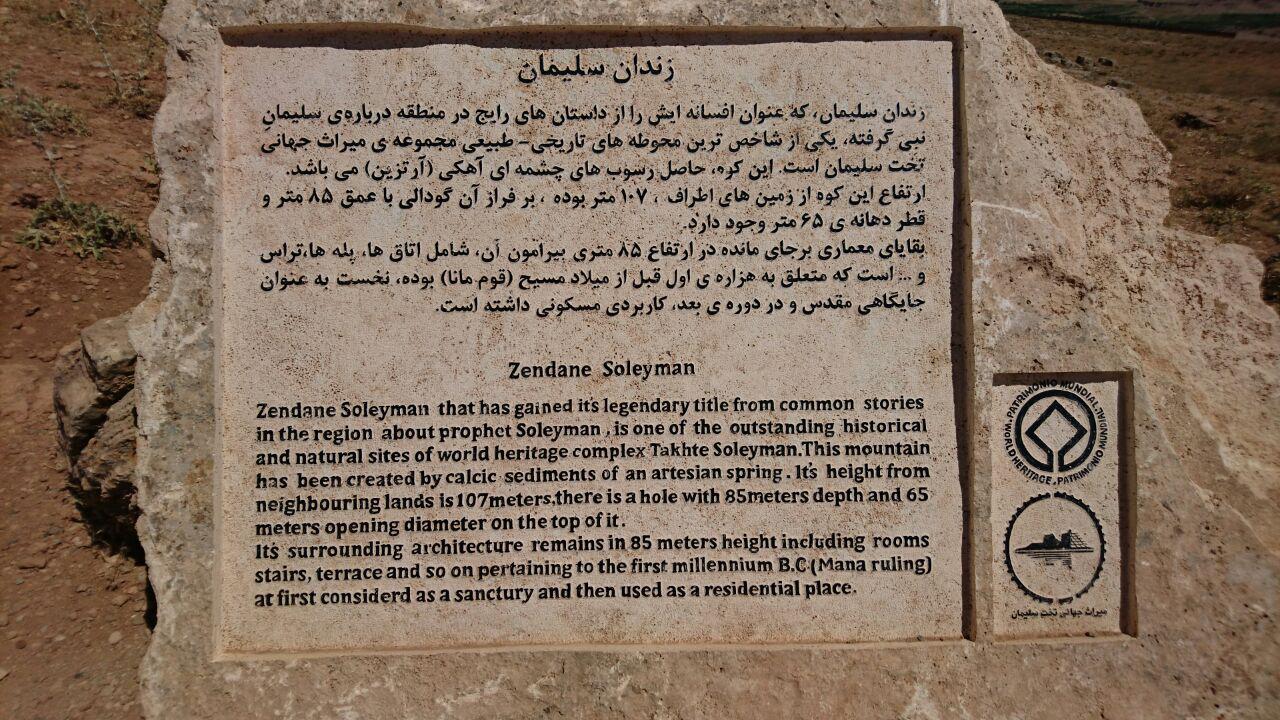 زندان سلیمان
زندان سلیمان، که عنوان افسانه ایش را از داستان های رایج در منطقه درباره‌ی سلیمان
نبی گرفته، یکی از شاخص ترین محوطه های تاریخی- طبیعی مجموعه ی میراث جهانی
تخت سلیمان است. این کوه، حاصل رسوب های چشمه ای آهکی (آرتزین) می باشد.
ارتفاع این کوه از زمین های اطراف ، ۱۰۷ متر بوده ، بر فراز آن گودالی با عمق ۸۵ متر و
قطر دهانه ی ۶۵ متر وجود دارد.
بقایای معماری برجای مانده در ارتفاع ۸۵ متری پیرامون آن، شامل اتاق ها، پله ها،تراس
و ... است که متعلق به هزاره ی اول قبل از میلاد مسیح (قوم مانا) بوده، نخست به عنوان
جایگاهی مقدس و در دوره ی بعد، کاربردی مسکونی داشته است.
Zendane Soleyman
Zendane Soleyman that has gained it's legendary title from common stories
in the region about prophet Soleyman , is one of the outstanding historical
and natural sites of world heritage complex Takhte Soleyman.This mountain
has been created by calcic sediments of an artesian spring . It's height from
neighbouring lands is 107meters,there is a hole with 85meters depth and 65
meters opening diameter on the top of it .
It's surrounding architecture remains in 85 meters height including rooms
stairs, terrace and so on pertaining to the first millennium B.C (Mana ruling)
at first considerd as a sanctury and then used as a residential place.
PATRIMONIO MUNDIAL
WORLD HERITAGE
PATRIMOINE MONDIAL
میراث جهانی تخت سلیمان